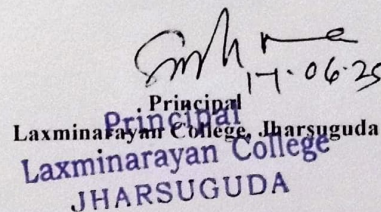 17.06.25
Principal
Laxminarayan College, Jharsuguda
Principal
Laxminarayan College
JHARSUGUDA